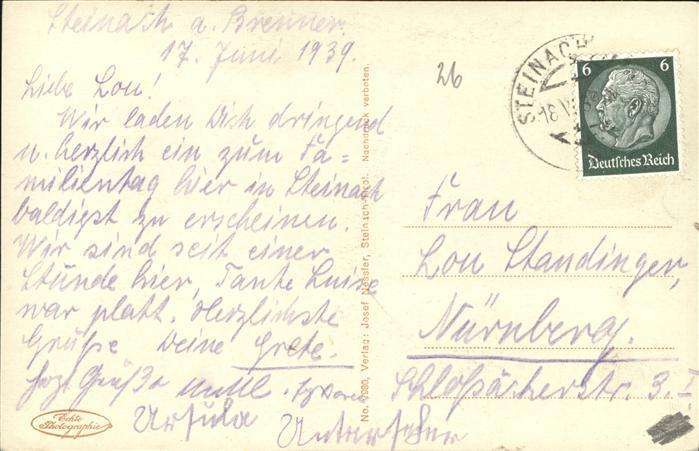 Steinach a. Brenner.
17. Juni 1939.
Liebe Lou!
Wir laden Dich dringend
u. herzlich ein zum Fa=
milientag hier in Steinach
baldigst zu erscheinen.
Wir sind seit einer
Stunde hier, Tante Luise
war platt. Herzlichste
Grüße Deine Grete.
Ursula
Echte
Photographie
No. Verlag: Josef Steinach-Tirol. Nachdruck verboten.
26
STEINACH
18 VI
6 6
Deutsches Reich
Frau
Lou Standinger,
Nürnberg.
Schloßäckerstr. 3. I